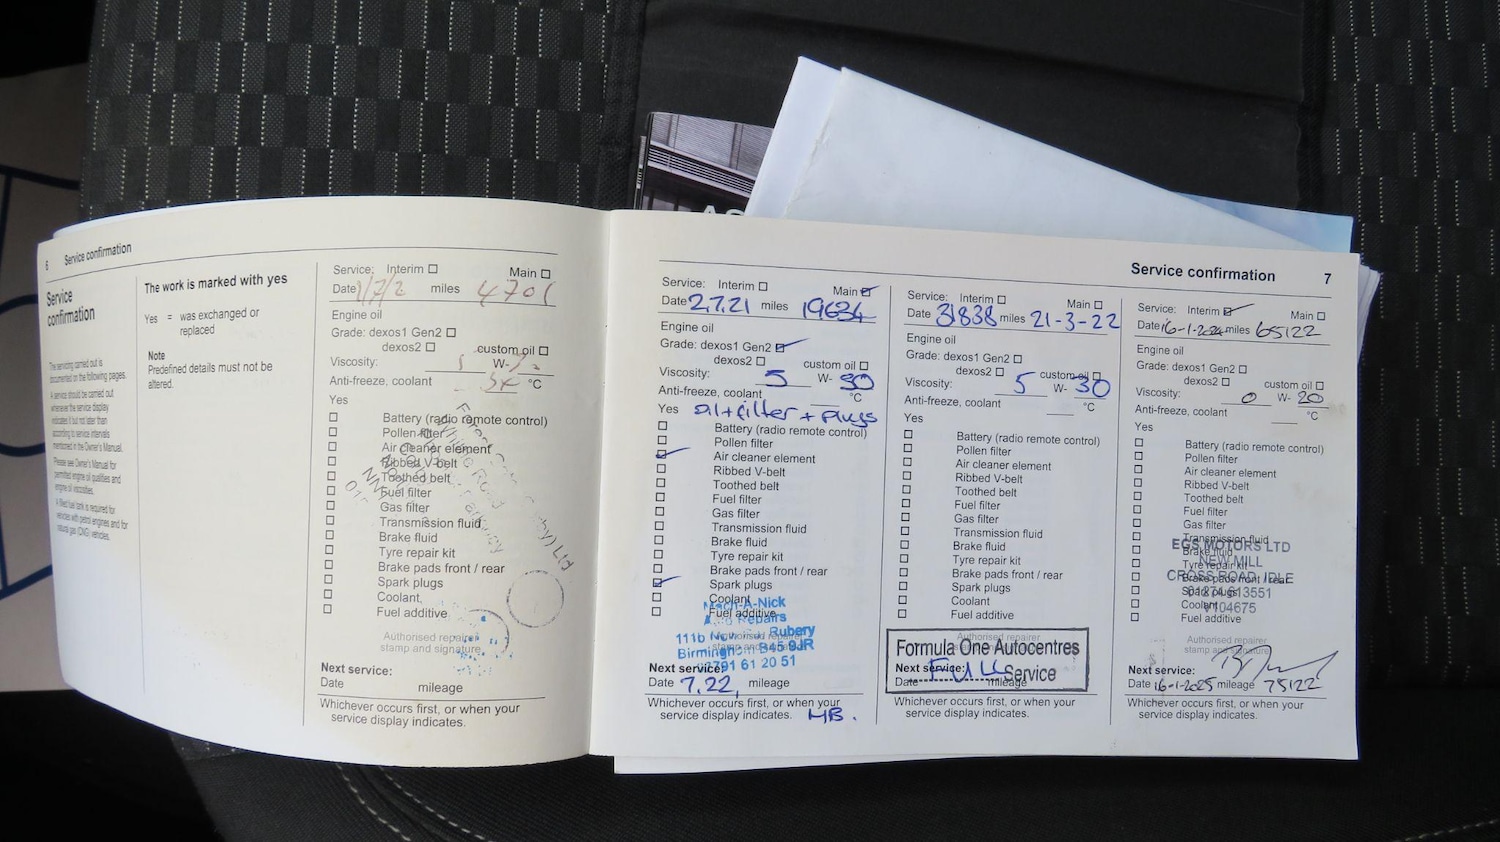 6 Service confirmation
Service
confirmation
The servicing carried out is
documented on the following pages.
A service should be carried out
whenever the service display
indicates it but not later than
according to service intervals
mentioned in the Owner's Manual.
Please see Owner's Manual for
permitted engine oil qualities and
engine oil viscosities.
A filled fuel tank is required for
vehicles with petrol engines and for
natural gas (CNG) vehicles.
The work is marked with yes
Yes = was exchanged or
replaced
Note
Predefined details must not be
altered.
Service: Interim ☐ Main ☐
Date 1/7/2 miles 4701
Engine oil
Grade: dexos1 Gen2 ☐
dexos2 ☐ custom oil ☐
Viscosity: W-
Anti-freeze, coolant °C
Yes
☐ Battery (radio remote control)
☐ Pollen filter
☐ Air cleaner element
☐ Ribbed V-belt
☐ Toothed belt
☐ Fuel filter
☐ Gas filter
☐ Transmission fluid
☐ Brake fluid
☐ Tyre repair kit
☐ Brake pads front / rear
☐ Spark plugs
☐ Coolant
☐ Fuel additive
Ltd
Authorised repairer
stamp and signature
Next service:
Date mileage
Whichever occurs first, or when your
service display indicates.
Service confirmation 7
Service: Interim ☐ Main ☑
Date 2.7.21 miles 19634
Engine oil
Grade: dexos1 Gen2 ☑
dexos2 ☐ custom oil ☐
Viscosity: 5 W- 30
Anti-freeze, coolant °C
Yes oil+filter+plugs
☐ Battery (radio remote control)
☐ Pollen filter
☑ Air cleaner element
☐ Ribbed V-belt
☐ Toothed belt
☐ Fuel filter
☐ Gas filter
☐ Transmission fluid
☐ Brake fluid
☐ Tyre repair kit
☐ Brake pads front / rear
☑ Spark plugs
☐ Coolant
☐ Fuel additive
Mech-A-Nick
Repairs
111b Rubery
Birmingham B45 9JR
07791 61 20 51
Authorised repairer
stamp and signature
Next service:
Date 7.22, mileage
Whichever occurs first, or when your
service display indicates. HB.
Service: Interim ☐ Main ☐
Date 31838 miles 21-3-22
Engine oil
Grade: dexos1 Gen2 ☐
dexos2 ☐ custom oil ☐
Viscosity: 5 W- 30
Anti-freeze, coolant °C
Yes
☐ Battery (radio remote control)
☐ Pollen filter
☐ Air cleaner element
☐ Ribbed V-belt
☐ Toothed belt
☐ Fuel filter
☐ Gas filter
☐ Transmission fluid
☐ Brake fluid
☐ Tyre repair kit
☐ Brake pads front / rear
☐ Spark plugs
☐ Coolant
☐ Fuel additive
Authorised repairer
Formula One Autocentres
Next service: FULL Service
Date mileage
Whichever occurs first, or when your
service display indicates.
Service: Interim ☑ Main ☐
Date 16-1-2024 miles 65122
Engine oil
Grade: dexos1 Gen2 ☐
dexos2 ☐ custom oil ☐
Viscosity: 0 W- 20
Anti-freeze, coolant °C
Yes
☐ Battery (radio remote control)
☐ Pollen filter
☐ Air cleaner element
☐ Ribbed V-belt
☐ Toothed belt
☐ Fuel filter
☐ Gas filter
☐ Transmission fluid
☐ Brake fluid
☐ Tyre repair kit
☐ Brake pads front / rear
☐ Spark plugs
☐ Coolant
☐ Fuel additive
EGS MOTORS LTD
NEW MILL
CROSS ROAD, IDLE
01274 613551
V104675
Authorised repairer
stamp and signature
Next service:
Date 16-1-2025 mileage 75122
Whichever occurs first, or when your
service display indicates.